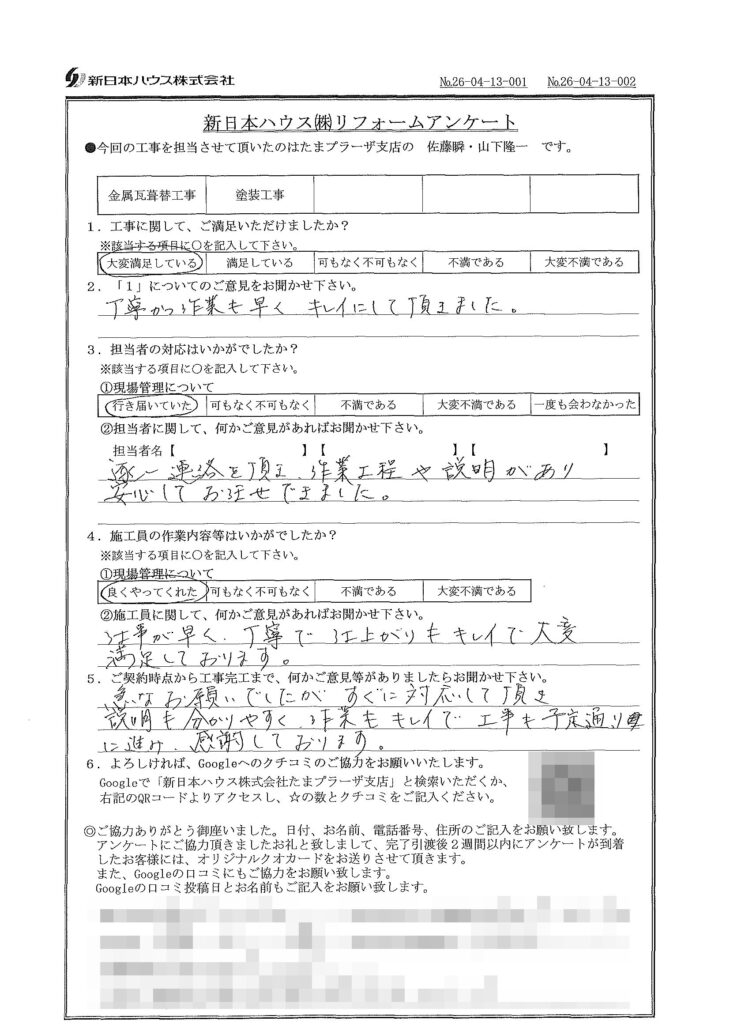 新日本ハウス株式会社 №26-04-13-001 №26-04-13-002
新日本ハウス㈱リフォームアンケート
●今回の工事を担当させて頂いたのはたまプラーザ支店の 佐藤瞬・山下隆一 です。
金属瓦葺替工事 塗装工事
1．工事に関して、ご満足いただけましたか？
※該当する項目に○を記入して下さい。
大変満足している 満足している 可もなく不可もなく 不満である 大変不満である
2．「1」についてのご意見をお聞かせ下さい。
丁寧かつ作業も早く キレイにして頂きました。
3．担当者の対応はいかがでしたか？
※該当する項目に○を記入して下さい。
①現場管理について
行き届いていた 可もなく不可もなく 不満である 大変不満である 一度も会わなかった
②担当者に関して、何かご意見があればお聞かせ下さい。
担当者名【 】【 】【 】
逐一連絡を頂き、作業工程や説明があり
安心してお任せできました。
4．施工員の作業内容等はいかがでしたか？
※該当する項目に○を記入して下さい。
①現場管理について
良くやってくれた 可もなく不可もなく 不満である 大変不満である
②施工員に関して、何かご意見があればお聞かせ下さい。
仕事が早く、丁寧で仕上がりもキレイで大変
満足しております。
5．ご契約時点から工事完工まで、何かご意見等がありましたらお聞かせ下さい。
急なお願いでしたが すぐに対応して頂き
説明も分かりやすく、作業もキレイで 工事も予定通り
に進み、感謝しております。
6．よろしければ、Googleへのクチコミのご協力をお願いいたします。
Googleで「新日本ハウス株式会社たまプラーザ支店」と検索いただくか、
右記のQRコードよりアクセスし、☆の数とクチコミをご記入ください。
◎ご協力ありがとう御座いました。日付、お名前、電話番号、住所のご記入をお願い致します。
アンケートにご協力頂きましたお礼と致しまして、完了引渡後２週間以内にアンケートが到着
したお客様には、オリジナルクオカードをお送りさせて頂きます。
また、Googleの口コミにもご協力をお願い致します。
Googleの口コミ投稿日とお名前もご記入をお願い致します。